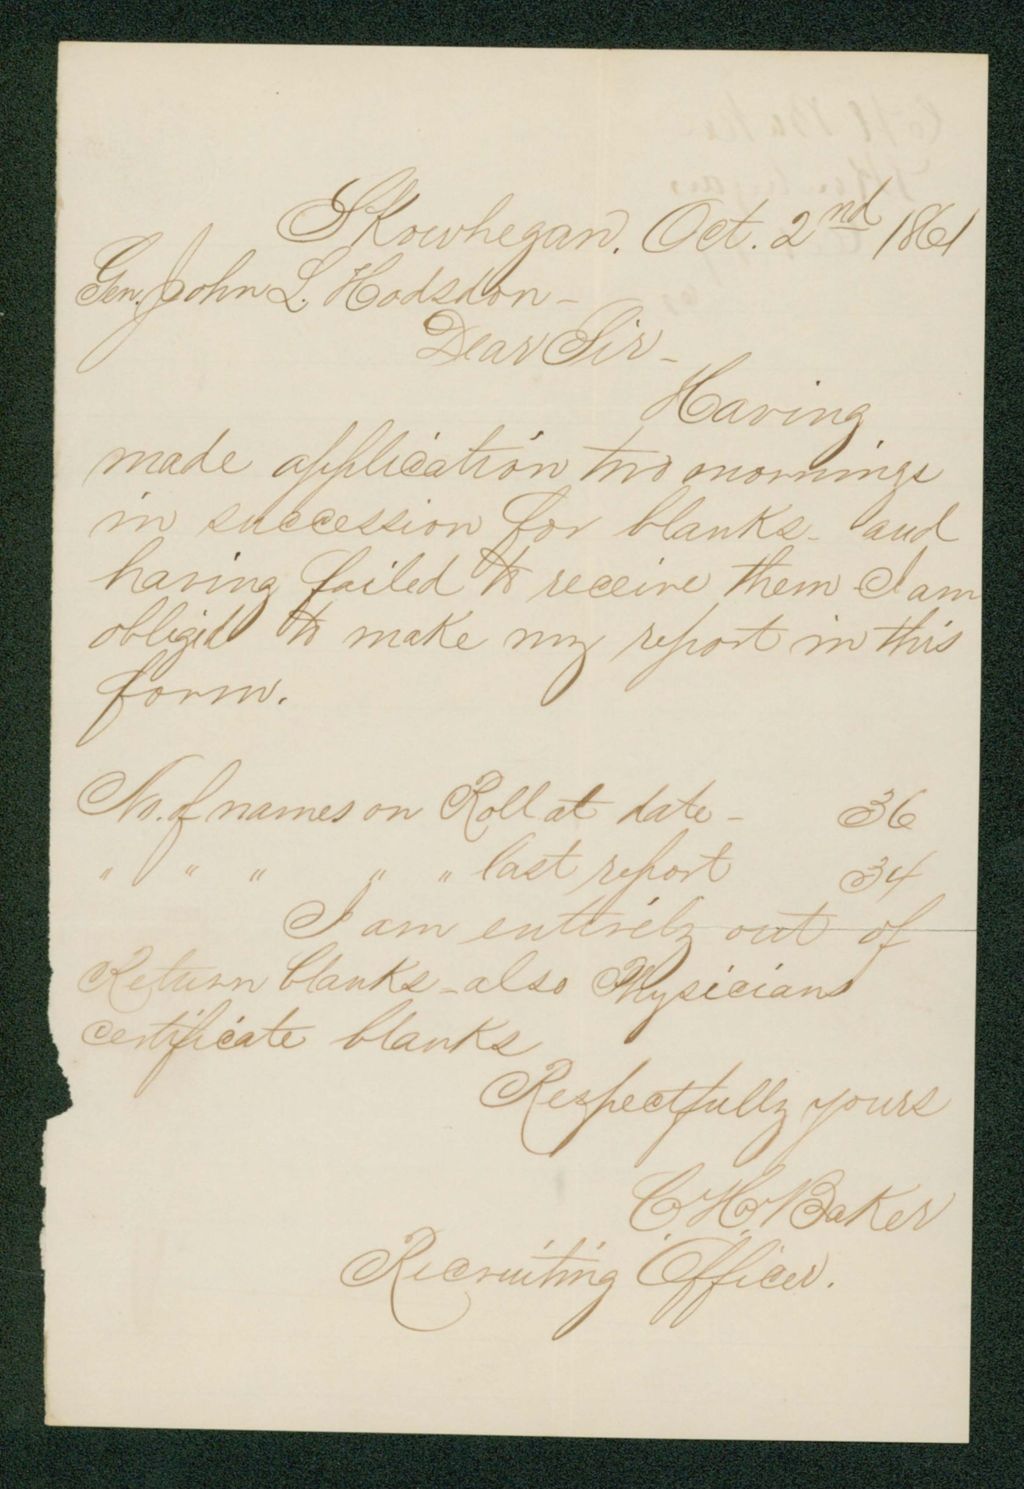 Skowhegan. Oct. 2nd 1861
Gen. John L. Hodsdon-
Dear Sir-
Having
made application two mornings
in succession for blanks- and
having failed to receive them I am
obliged to make my report in this
form.
No. of names on Roll at date - 36
" " " " " last report 34
I am entirely out of
Return blanks - also Physicians
certificate blanks
Respectfully yours
C. H. Baker
Recruiting Officer.